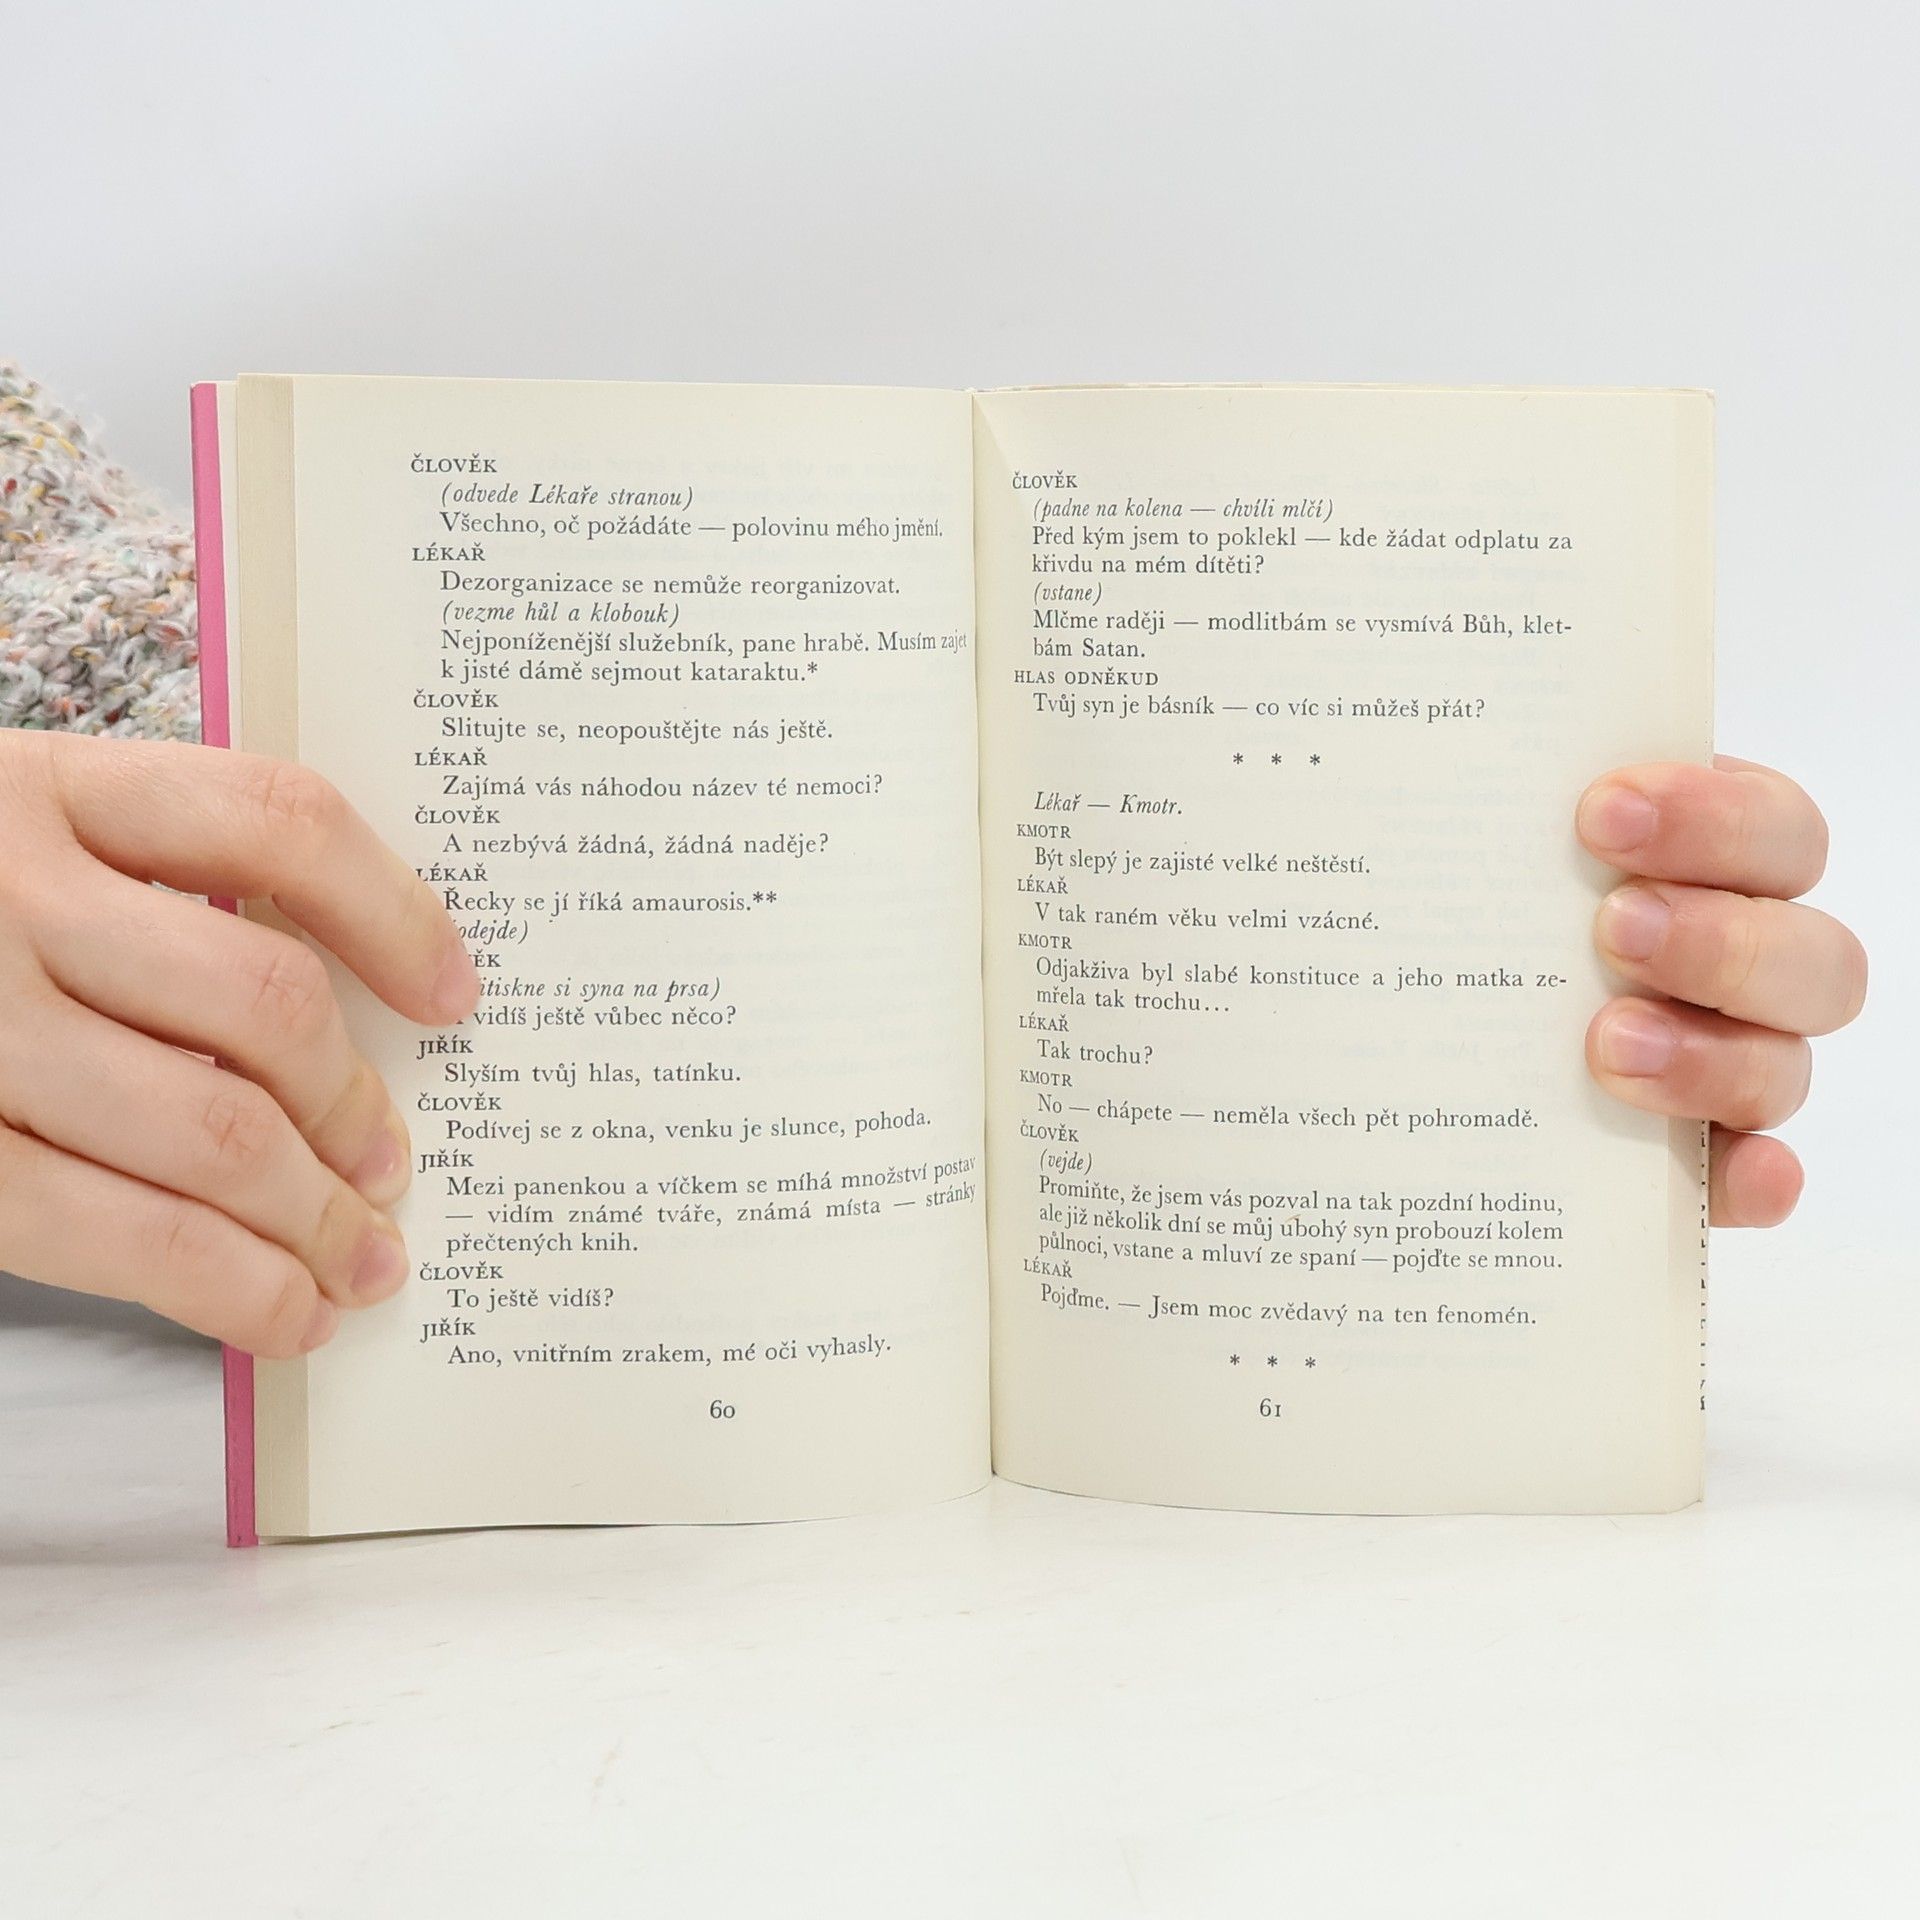 ČLOVĚK
(odvede Lékaře stranou)
Všechno, oč požádáte — polovinu mého jmění.
LÉKAŘ
Dezorganizace se nemůže reorganizovat.
(vezme hůl a klobouk)
Nejponíženější služebník, pane hrabě. Musím zajet
k jisté dámě sejmout kataraktu.*
ČLOVĚK
Slitujte se, neopouštějte nás ještě.
LÉKAŘ
Zajímá vás náhodou název té nemoci?
ČLOVĚK
A nezbývá žádná, žádná naděje?
LÉKAŘ
Řecky se jí říká amaurosis.**
odejde)
si syna na prsa)
vidíš ještě vůbec něco?
JIŘÍK
Slyším tvůj hlas, tatínku.
ČLOVĚK
Podívej se z okna, venku je slunce, pohoda.
JIŘÍK
Mezi panenkou a víčkem se míhá množství postav
— vidím známé tváře, známá místa — stránky
přečtených knih.
ČLOVĚK
To ještě vidíš?
JIŘÍK
Ano, vnitřním zrakem, mé oči vyhasly.
60
ČLOVĚK
(padne na kolena — chvíli mlčí)
Před kým jsem to poklekl — kde žádat odplatu za
křivdu na mém dítěti?
(vstane)
Mlčme raději — modlitbám se vysmívá Bůh, klet-
bám Satan.
HLAS ODNĚKUD
Tvůj syn je básník — co víc si můžeš přát?
* * *
Lékař — Kmotr.
KMOTR
Být slepý je zajisté velké neštěstí.
LÉKAŘ
V tak raném věku velmi vzácné.
KMOTR
Odjakživa byl slabé konstituce a jeho matka ze-
mřela tak trochu...
LÉKAŘ
Tak trochu?
KMOTR
No — chápete — neměla všech pět pohromadě.
ČLOVĚK
(vejde)
Promiňte, že jsem vás pozval na tak pozdní hodinu,
ale již několik dní se můj ubohý syn probouzí kolem
půlnoci, vstane a mluví ze spaní — pojďte se mnou.
LÉKAŘ
Pojďme. — Jsem moc zvědavý na ten fenomén.
* * *
61